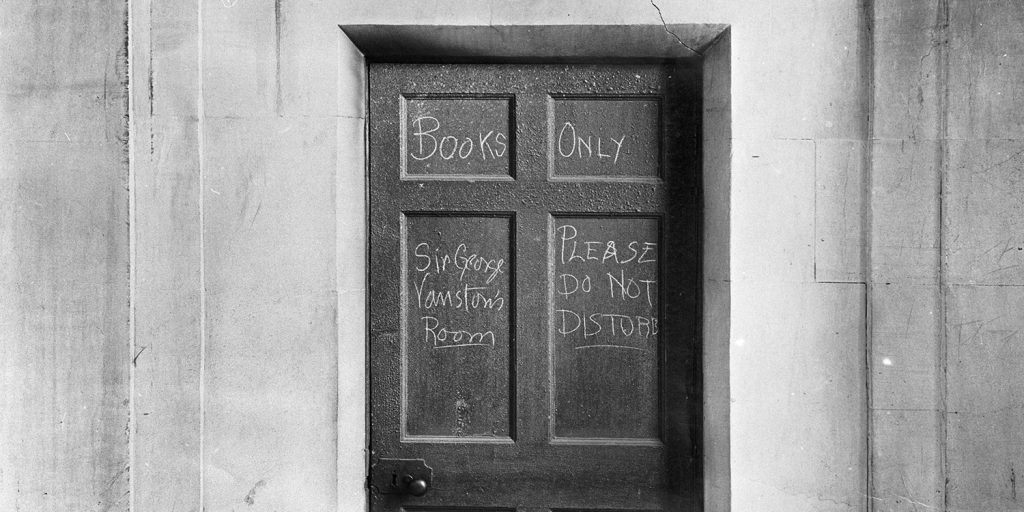 Books
Only
Sir George
Vanston's
Room
Please
Do Not
Distorb